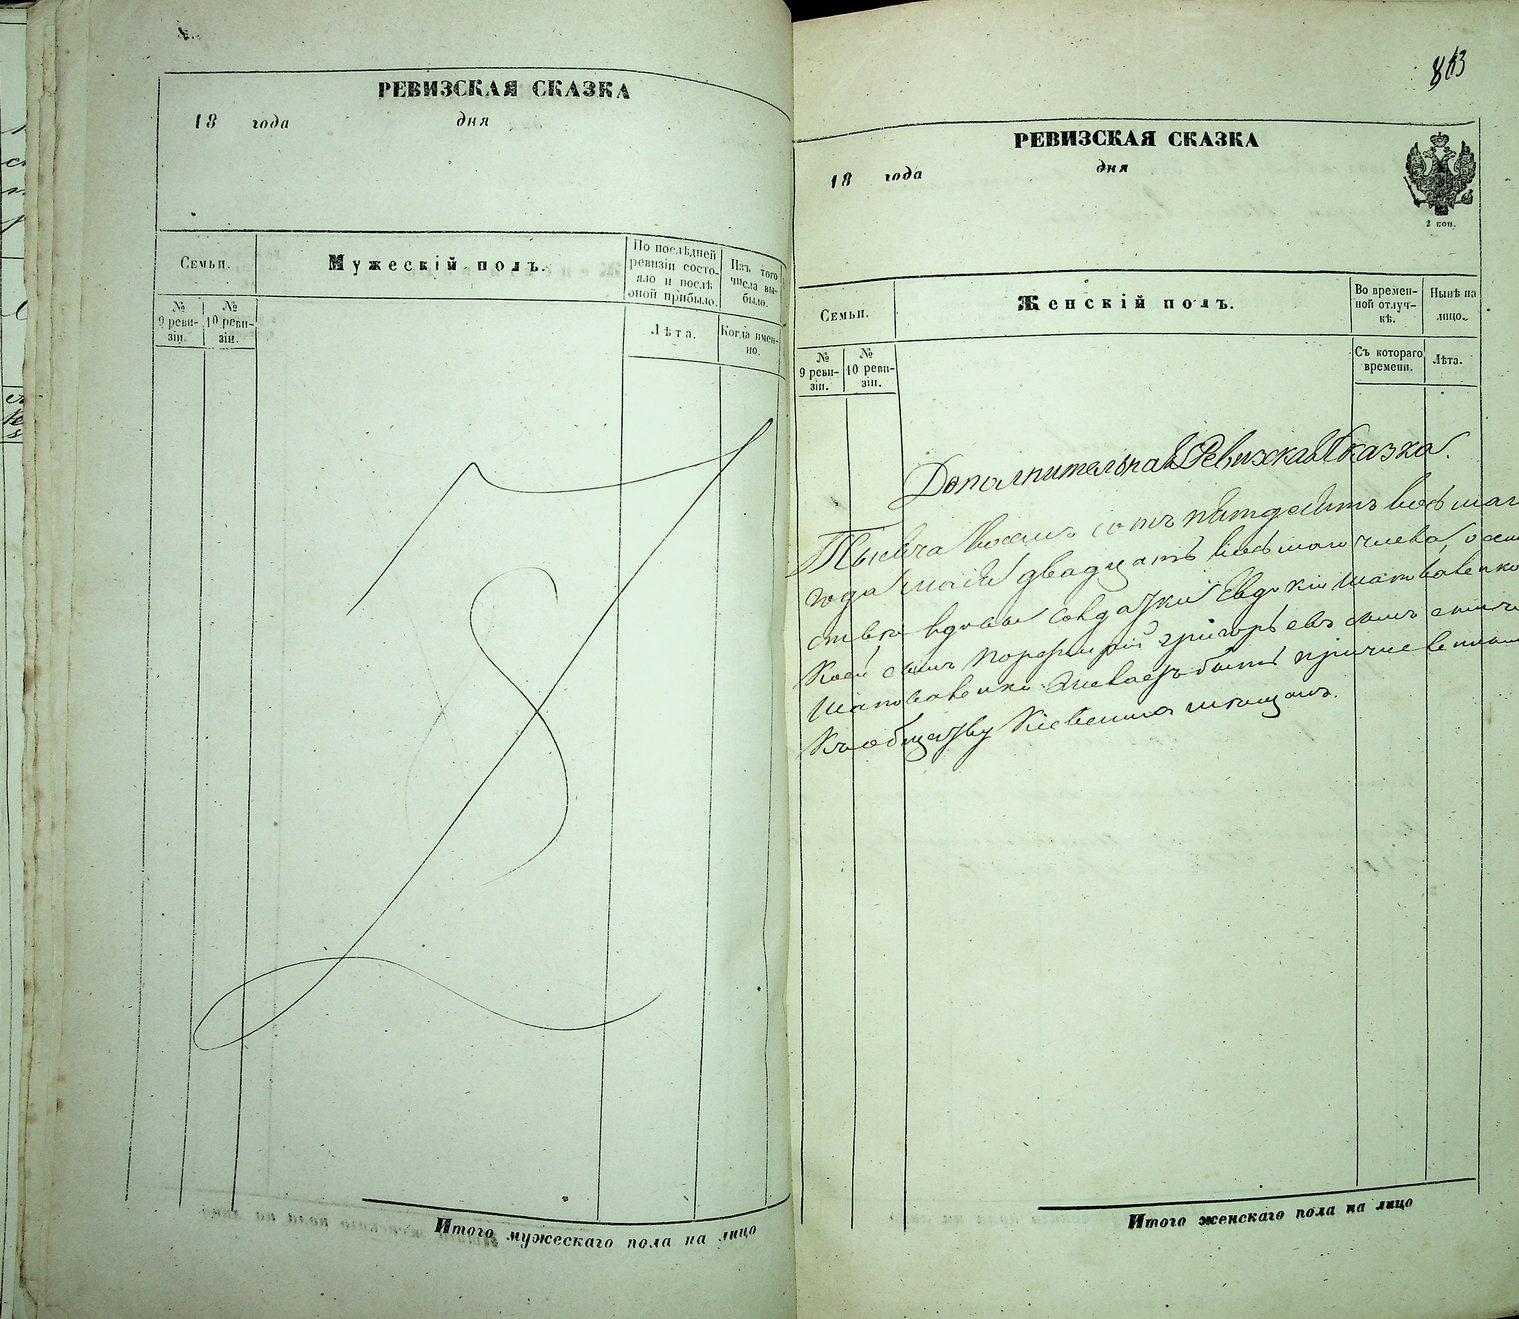 РЕВИЗСКАЯ СКАЗКА
18 года дня
Семьи.
Мужескій полъ.
По послѣдней ревизіи состояло и послѣ оной прибыло.
Изъ того числа выбыло.
№ 9 ревизіи.
№ 10 ревизіи.
Лѣта.
Когда именно.
Итого мужескаго пола на лицо
РЕВИЗСКАЯ СКАЗКА
18 года дня
2 коп.
Семьи.
Женскій полъ.
Во временной отлучкѣ.
Нынѣ на лицо.
№ 9 ревизіи.
№ 10 ревизіи.
Съ котораго времени.
Лѣта.
Дополнительная Ревизская Сказка.
Тысяча восемь сотъ пятдесятъ восьмаго
года мая двадцать восьмого числа, о сем
ства вдовы солдатки Евдокіи Шаповаленко
коей сынъ Порфирій Григорьевъ сынъ
Шаповаленко желаетъ быть причисленным
Къ обществу Кіевских мещанъ.
Итого женскаго пола на лицо